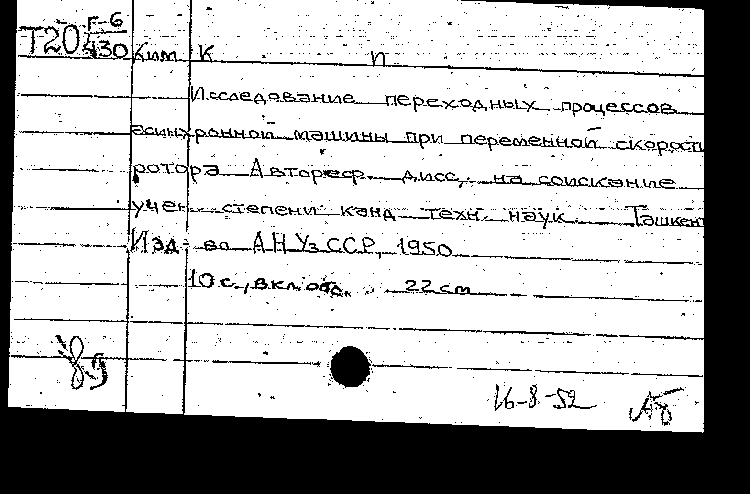 Г-6
Т20 430 Ким К П
Исследование переходных процессов
асинхронной машины при переменной скорости
ротора Автореф. дисс. на соискание
учен степени канд техн. наук. Ташкент
Изд-во АН УзССР, 1950
10 с., вкл. обл. 22 см
16-8-52